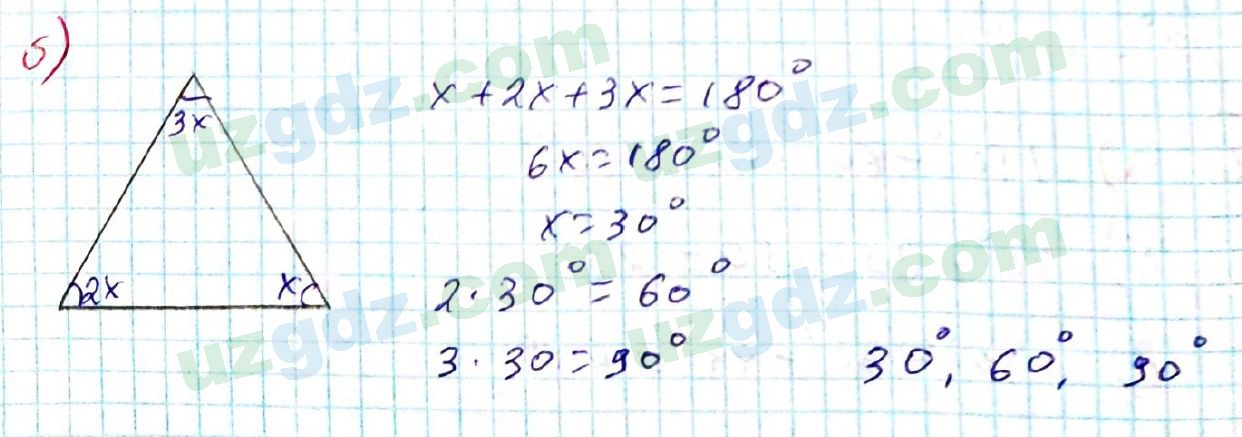 б)
3x
2x
x
x+2x+3x=180°
6x=180°
x=30°
2·30°=60°
3·30=90°
30°, 60°, 90°
uzgdz.com
uzgdz.com
uzgdz.com
uzgdz.com